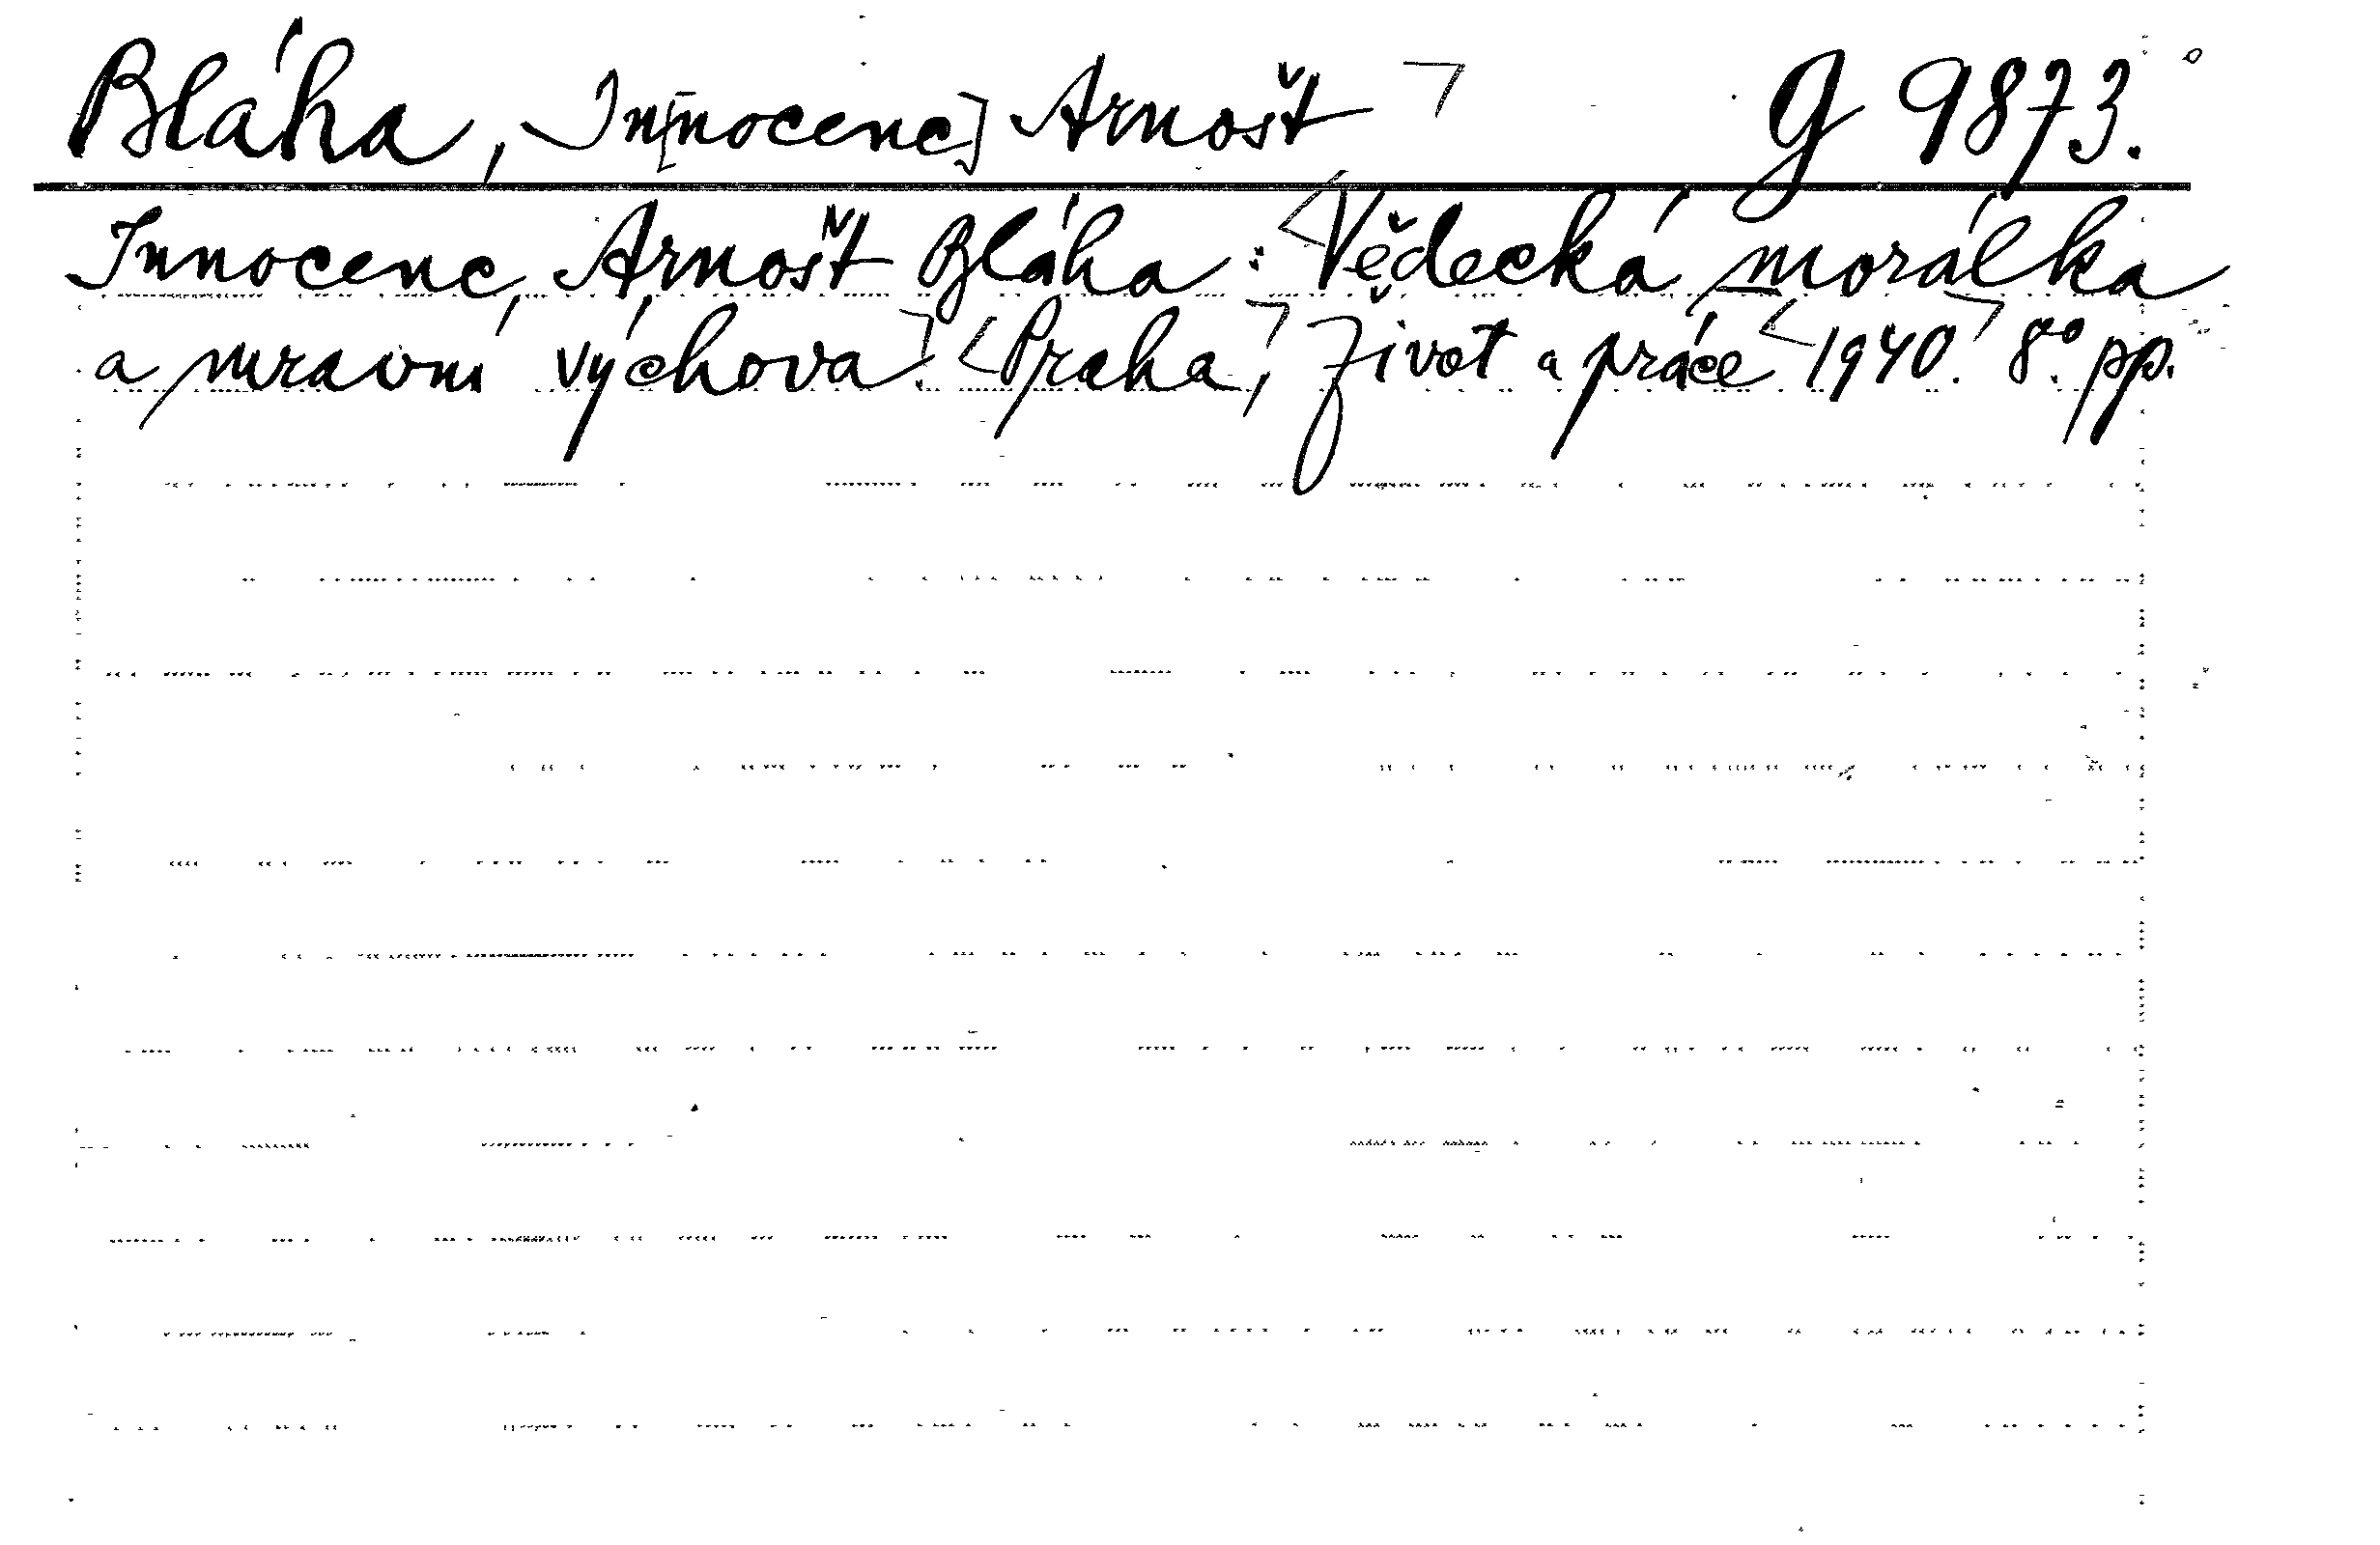 Bláha, In[nocenc] Arnošt G 9873.
Innocenc Arnošt Bláha: Vědecká morálka
a mravní výchova. Praha, Život a práce 1940. 8° pp.